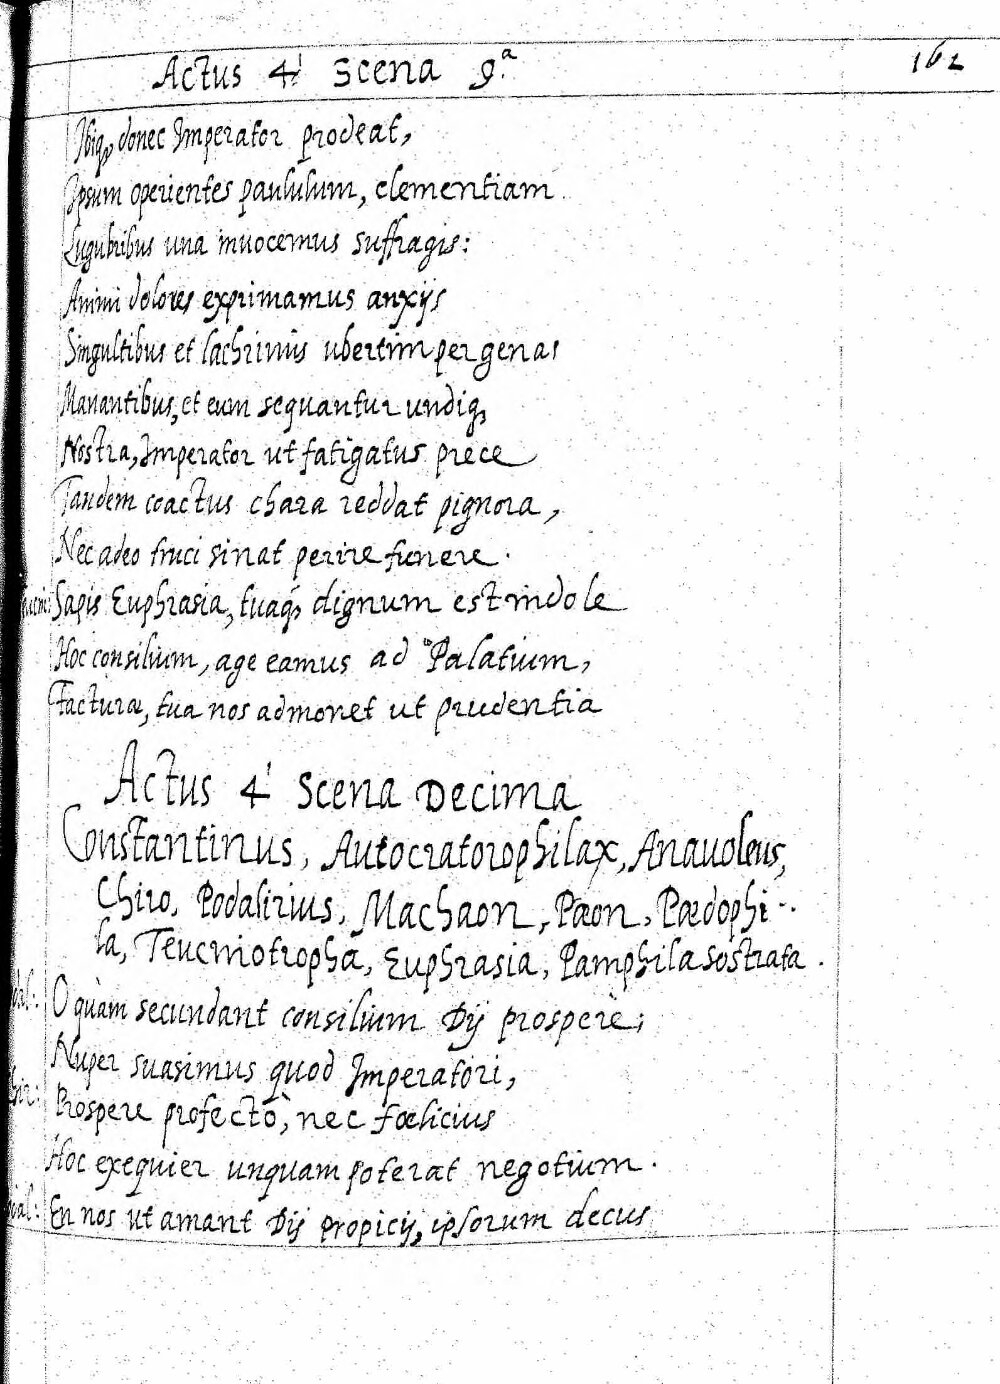 Actus 4i Scena 9.a 162
Ibiq, donec Imperator prodeat,
Ipsum operientes paululum, clementiam
Lugubribus una inuocemus suffragis:
Animi dolores exprimamus anxijs
Singultibus et lachrimis ubertim per genas
Manantibus, et eum sequantur undiq,
Nostra, Imperator ut fatigatus prece
Tandem coactus chara reddat pignora,
Nec adeo truci sinat perire funere.
Sapis Euphrasia, tuaq, dignum est indole
Hoc consilium, age eamus ad Palatium,
Facturæ, tua nos admonet ut prudentia
Actus 4i Scena Decima
Constantinus, Autocratorophilax, Anauoleus,
Chiro, Podalirius, Machaon, Pæon, Pædophi-
la, Teucniotropha, Euphrasia, Pamphila Sostrata.
O quàm secundant consilium Dij prosperè;
Nuper suasimus quod Imperatori,
Prospere profectò, nec fœlicius
Hoc exequier unquam poterat negotium.
En nos ut amant Dij propicij, ipsorum decus